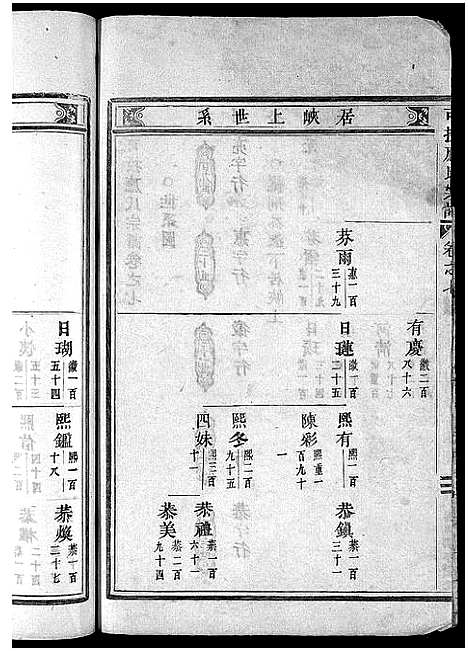 居峽上世系
卷之七
有慶 徽二百八十六
芬雨 惠一百三十九
日璉 徽一百二十五
熙有 熙一百
恭鎮 恭一百三十一
陳彩 熙重一百九十
熙冬 熙二百九十五
四妹 熙三百十一
恭禮 恭一百六十一
恭美 恭二百九十四
日瑚 徽一百五十四
熙鑑 熙一百十八
恭煥 恭一百二十七